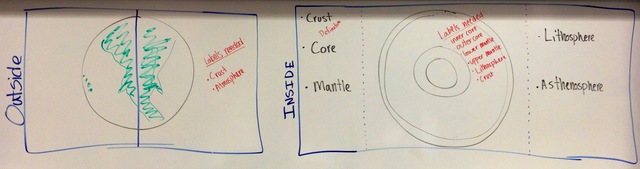 Outside
Labels needed
• Crust
• Atmosphere
INSIDE
• Crust
Definition
• Core
• Mantle
Labels needed
inner core
outer core
• lower mantle
• upper mantle
• Lithosphere
• Crust
• Lithosphere
• Asthenosphere